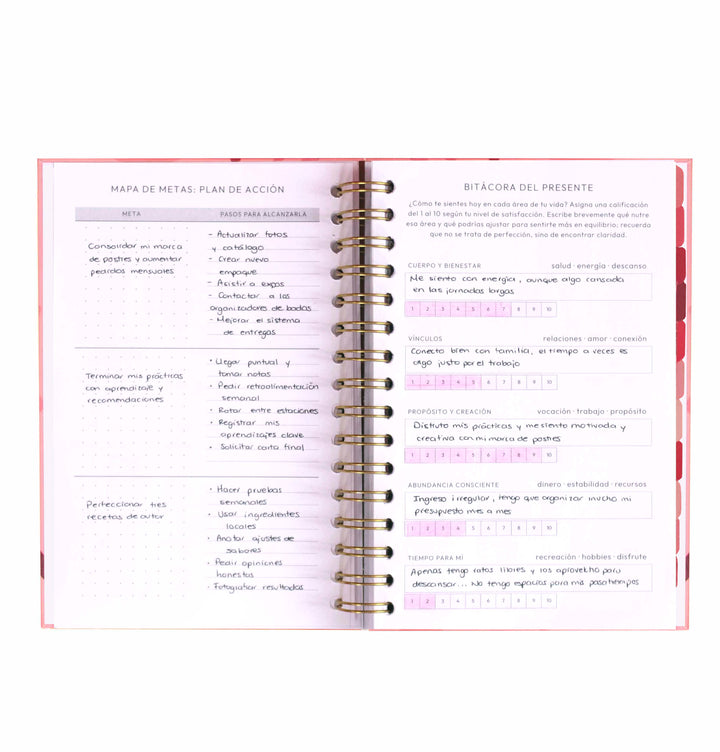 MAPA DE METAS: PLAN DE ACCIÓN
META
PASOS PARA ALCANZARLA
Consolidar mi marca
de postres y aumentar
pedidos mensuales
- Actualizar fotos
y catálogo
- Crear nuevo
empaque
- Asistir a expos
- Contactar a los
organizadores de bodas
- Mejorar el sistema
de entregas
Terminar mis prácticas
con aprendizaje y
recomendaciones
• Llegar puntual y
tomar notas
• Pedir retroalimentación
semanal
• Rotar entre estaciones
• Registrar mis
aprendizajes clave
• Solicitar carta final
Perfeccionar tres
recetas de autor
• Hacer pruebas
semanales
• Usar ingredientes
locales
• Anotar ajustes de
sabores
• Pedir opiniones
honestas
• Fotografiar resultados
BITÁCORA DEL PRESENTE
¿Cómo te sientes hoy en cada área de tu vida? Asigna una calificación
del 1 al 10 según tu nivel de satisfacción. Escribe brevemente qué nutre
esa área y qué podrías ajustar para sentirte más en equilibrio; recuerda
que no se trata de perfección, sino de encontrar claridad.
CUERPO Y BIENESTAR salud · energía · descanso
Me siento con energía, aunque algo cansada
en las jornadas largas
1 2 3 4 5 6 7 8 9 10
VÍNCULOS relaciones · amor · conexión
Conecto bien con familia, el tiempo a veces es
algo justo por el trabajo
1 2 3 4 5 6 7 8 9 10
PROPÓSITO Y CREACIÓN vocación · trabajo · propósito
Disfruto mis prácticas y me siento motivada y
creativa con mi marca de postres
1 2 3 4 5 6 7 8 9 10
ABUNDANCIA CONSCIENTE dinero · estabilidad · recursos
Ingreso irregular, tengo que organizar mucho mi
presupuesto mes a mes
1 2 3 4 5 6 7 8 9 10
TIEMPO PARA MÍ recreación · hobbies · disfrute
Apenas tengo ratos libres y los aprovecho para
descansar... No tengo espacios para mis pasatiempos
1 2 3 4 5 6 7 8 9 10